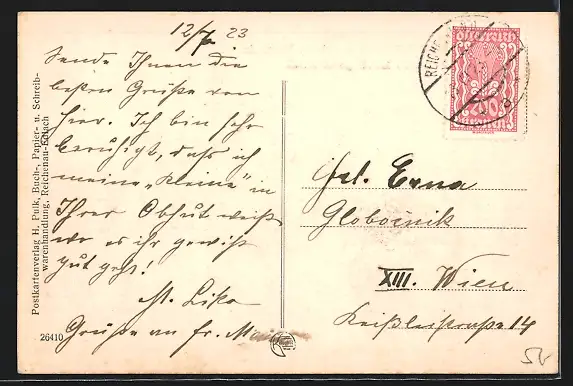 12/7 23
Sende Ihnen die
besten Grüße von
hier. Ich bin sehr
beruhigt, daß ich
meine „Kleine" in
Ihrer Obhut weiß
wo es ihr gewiß
gut geht!
Grüße an Fr.
Postkartenverlag H. Pulk, Buch-, Papier- u. Schreib-
warenhandlung, Reichenau-Edlach
26410
REICHE
österreich
400
Frl. Erna
Globočnik
XIII. Wien
Keißlerstraße 14